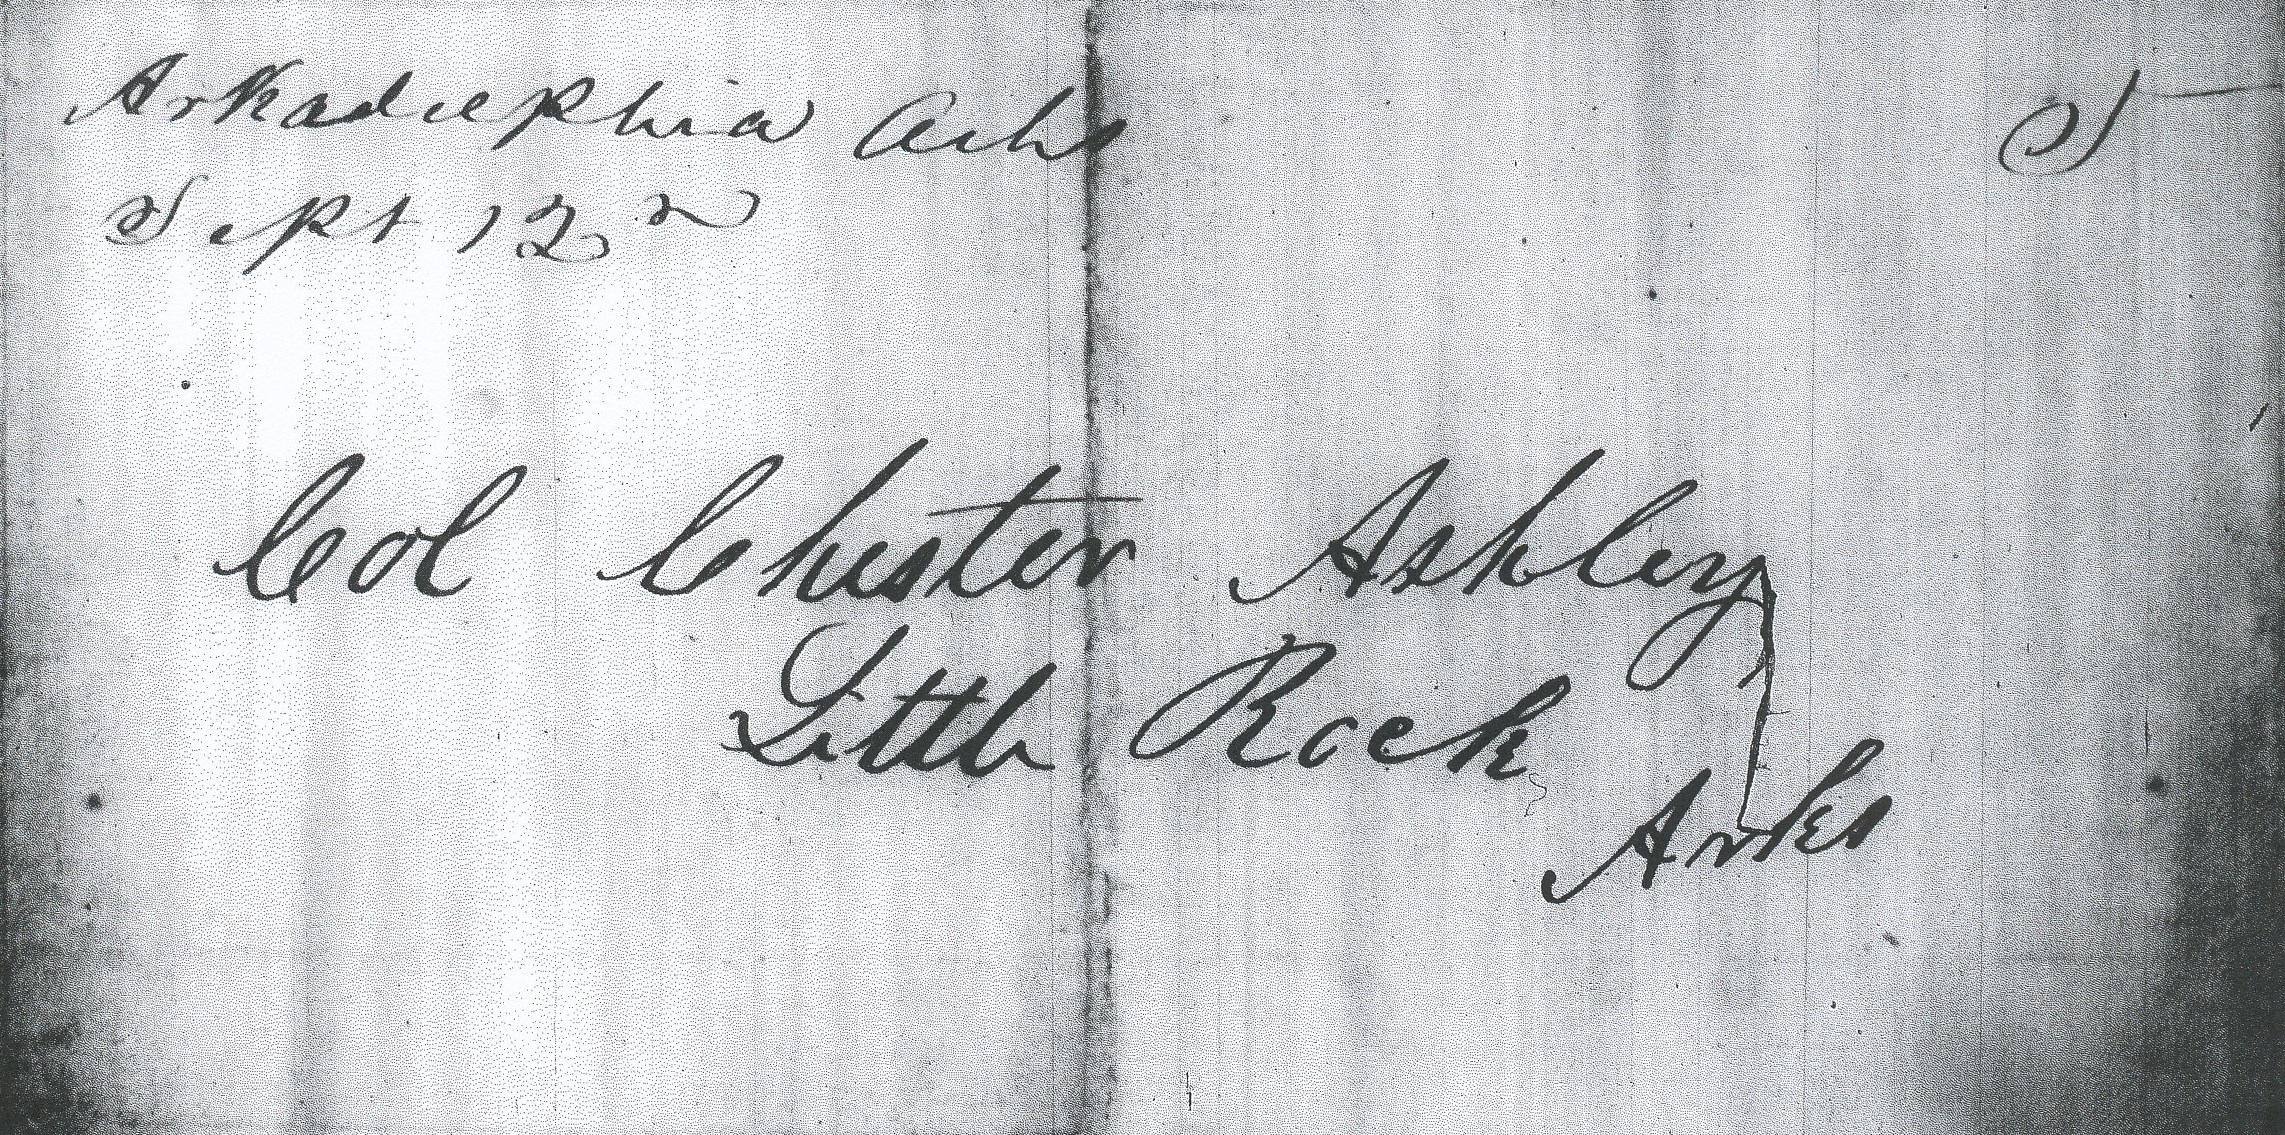 Arkadephia Arks
Sept 12
Col Chester Ashley
Little Rock
Arks